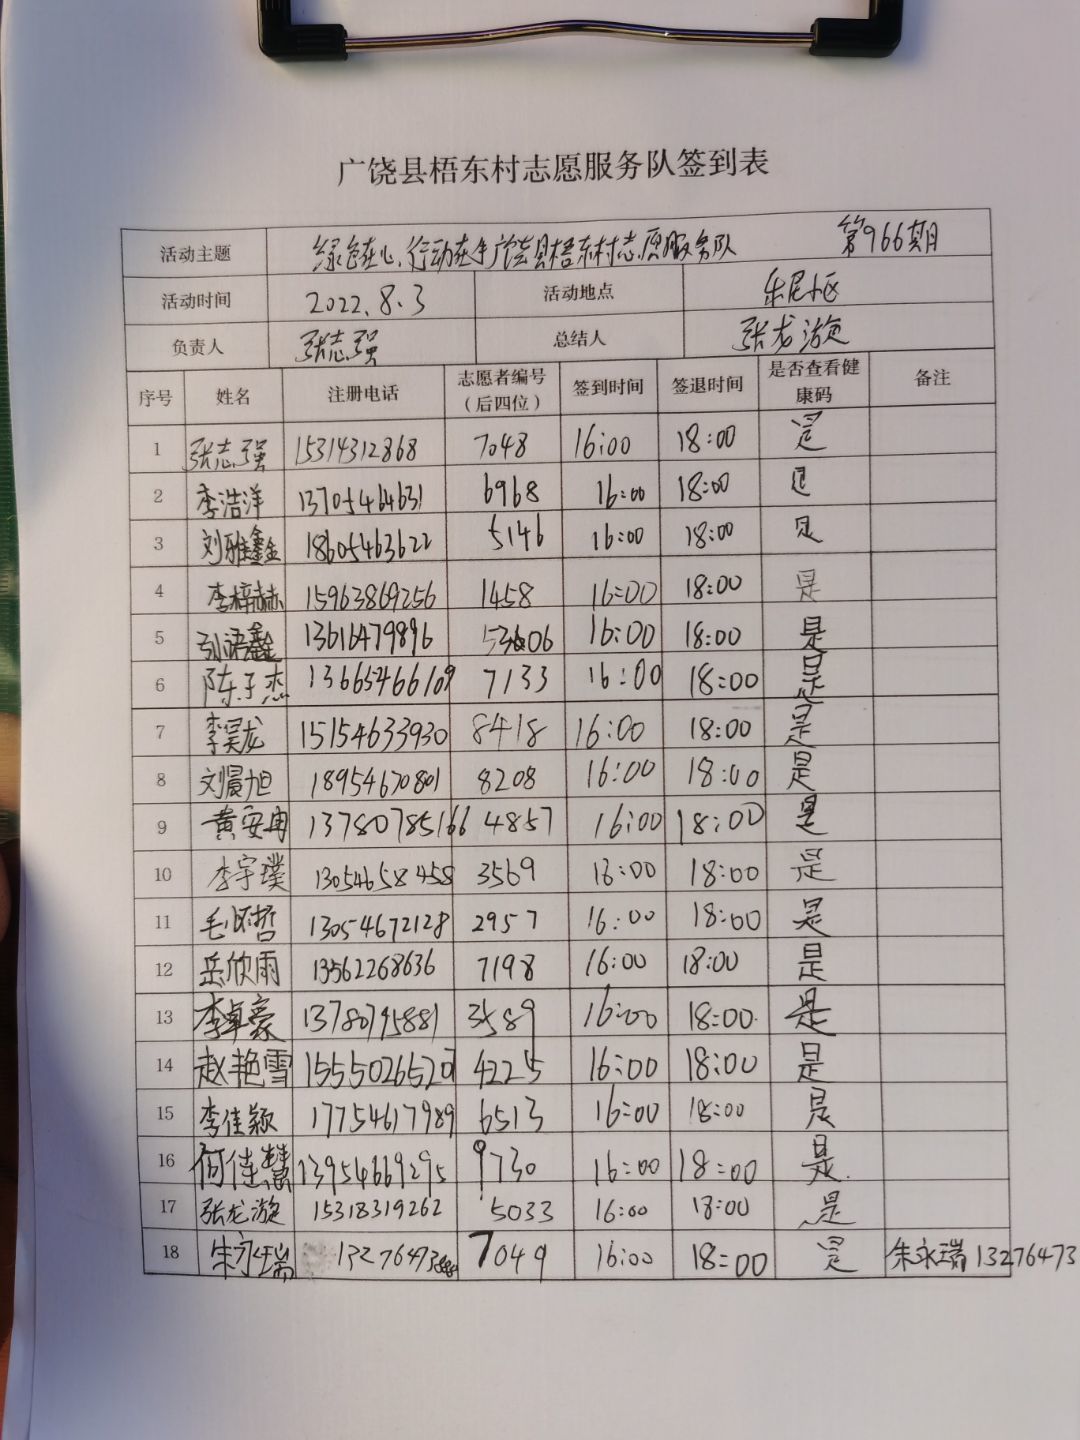 广饶县梧东村志愿服务队签到表
活动主题 绿色在心、行动在手广饶县梧东村志愿服务队 第966期
活动时间 2022.8.3 活动地点 乐尼小区
负责人 张志强 总结人 张龙漩
序号 姓名 注册电话 志愿者编号（后四位） 签到时间 签退时间 是否查看健康码 备注
1 张志强 15314312868 7048 16:00 18:00 是
2 李浩洋 13705464631 6968 16:00 18:00 是
3 刘雅鑫 18605463622 5146 16:00 18:00 是
4 李梓赫 15963869256 1458 16:00 18:00 是
5 13616479896 16:00 18:00 是
6 陈子杰 13665466109 7133 16:00 18:00 是
7 李昊龙 15154633930 8418 16:00 18:00 是
8 刘晨旭 18954670801 8208 16:00 18:00 是
9 黄安冉 13780785166 4857 16:00 18:00 是
10 李宇璞 13054658458 3569 16:00 18:00 是
11 13054672128 2957 16:00 18:00 是
12 岳欣雨 13562268636 7198 16:00 18:00 是
13 李卓豪 13780795881 3589 16:00 18:00 是
14 赵艳雪 15550265207 4225 16:00 18:00 是
15 李佳颖 17754617989 6513 16:00 18:00 是
16 何佳慧 13954669295 9730 16:00 18:00 是
17 张龙漩 15318319262 5033 16:00 18:00 是
18 朱永瑞 7049 16:00 18:00 是 朱永瑞 13276473